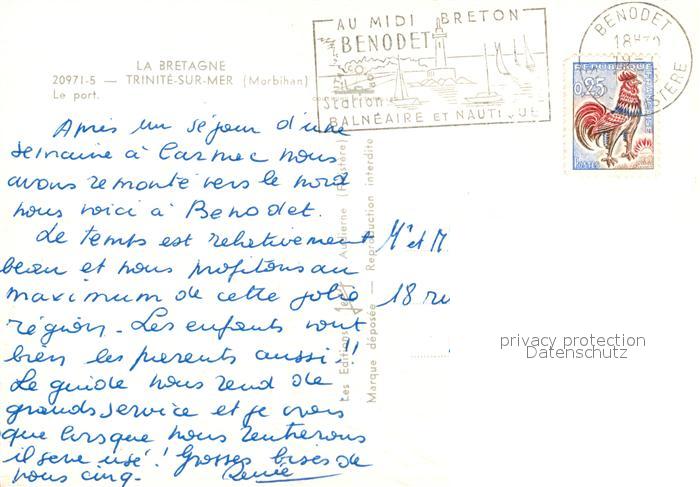 LA BRETAGNE
20971-5 — TRINITÉ-SUR-MER (Morbihan)
Le port.
AU MIDI BRETON
BENODET
Station
BALNÉAIRE ET NAUTIQUE
BENODET
18H
19-
FINISTERE
REPUBLIQUE FRANÇAISE
0,25
POSTES
Après un séjour d'une
semaine à Carnac nous
avons remonté vers le nord
nous voici à Benodet.
Le temps est relativement
beau et nous profitons au
maximum de cette jolie
région. Les enfants vont
bien les parents aussi!!
Le guide nous rend de
grands service et je crois
que lorsque nous rentrerons
il sera usé! Grosses bises de
nous cinq. Renée
Les Editions Jos Audierne (Finistère)
Marque déposée — Reproduction interdite
Mr et M
18 ru
privacy protection
Datenschutz